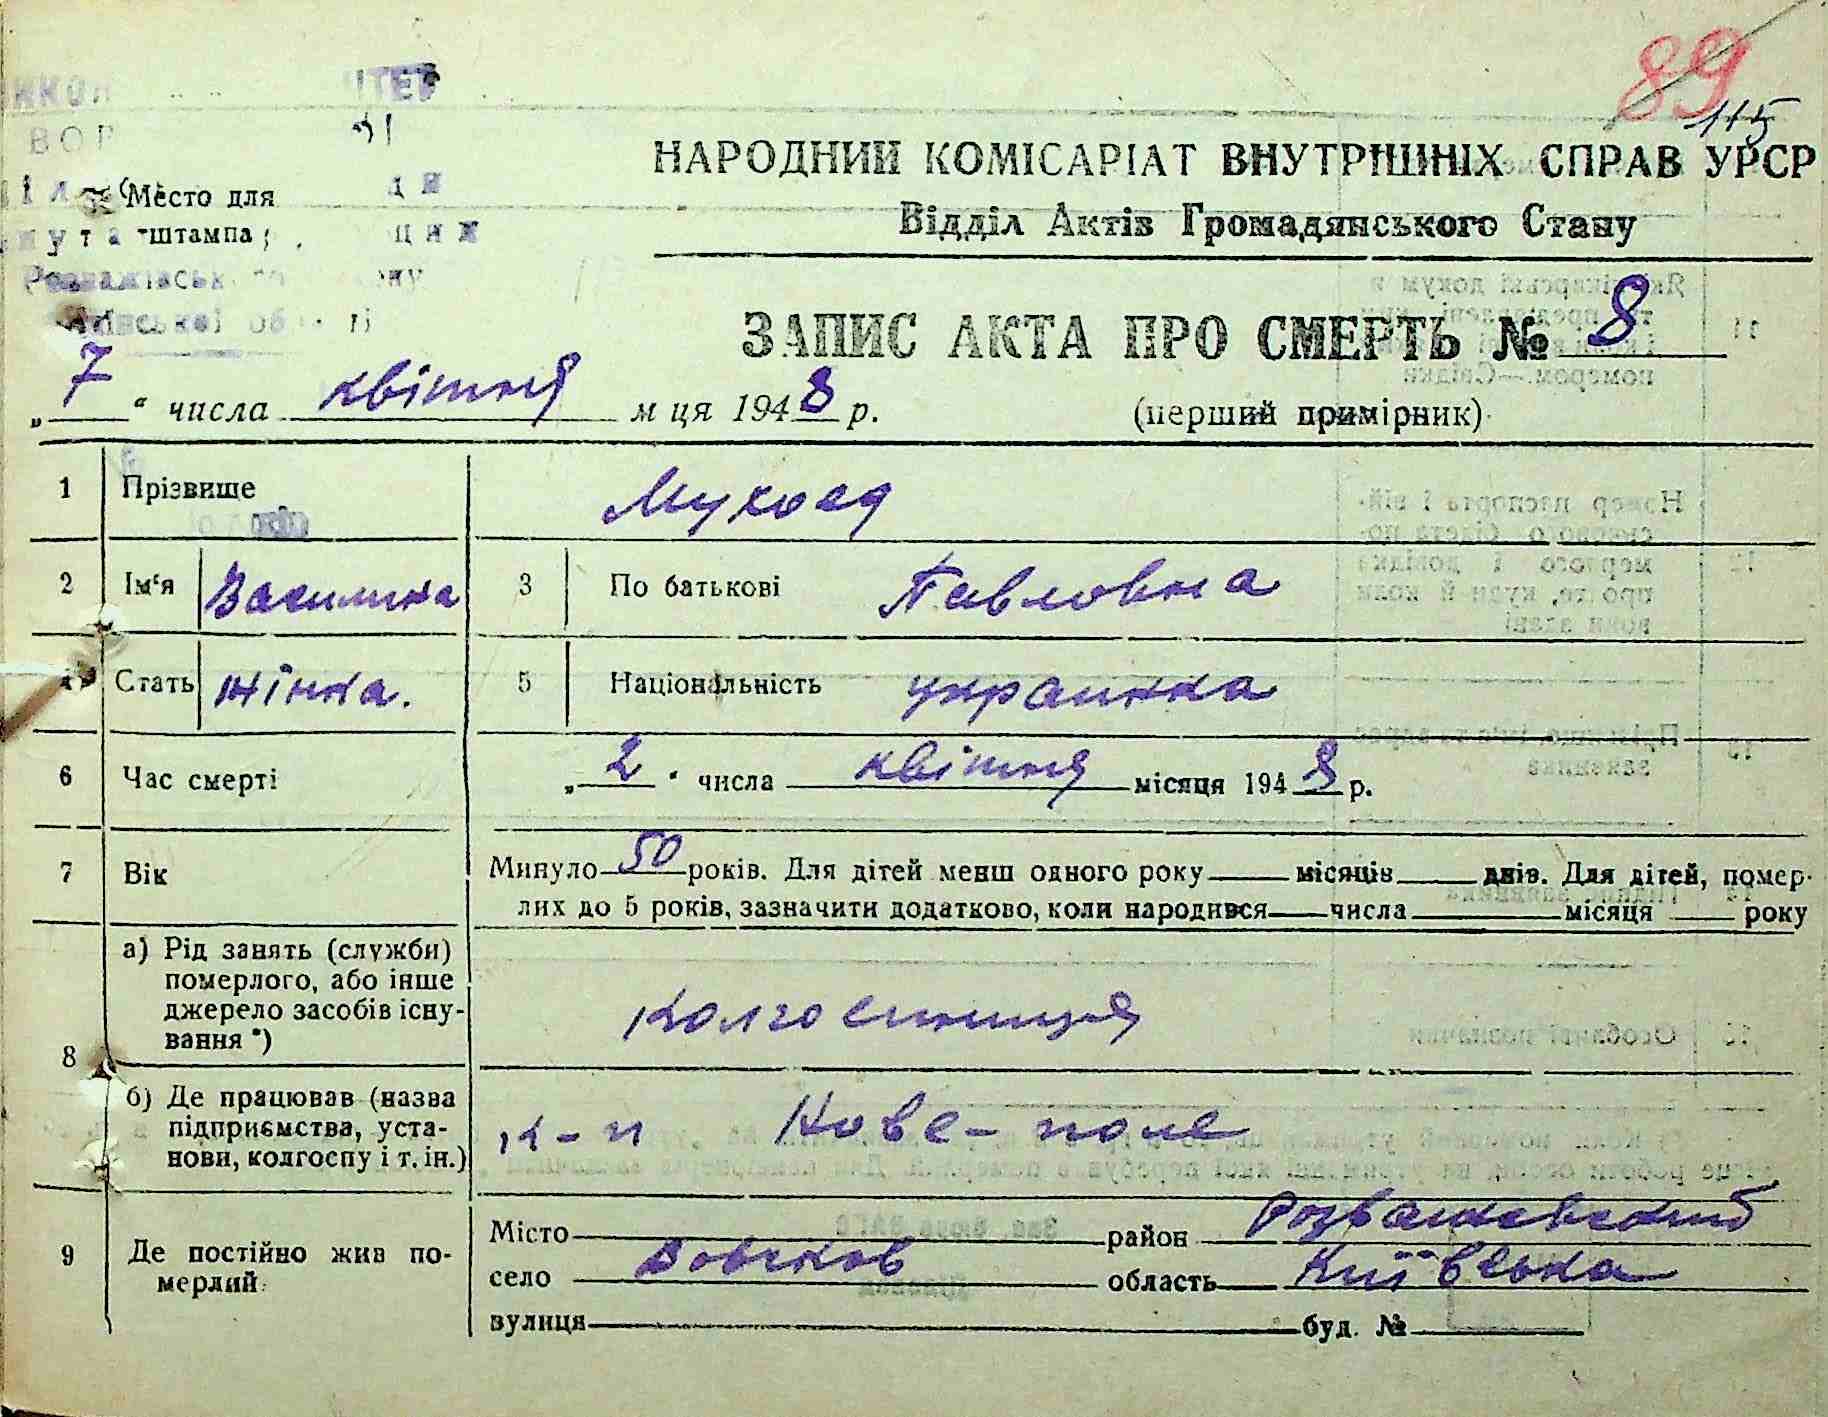 89
115
НАРОДНИЙ КОМІСАРІАТ ВНУТРІШНІХ СПРАВ УРСР
Место для
штампа
Відділ Актів Громадянського Стану
ЗАПИС АКТА ПРО СМЕРТЬ № 8
„7“ числа квітня м ця 1948 р. (перший примірник)
1 Прізвище Мухоед
2 Ім'я Василина 3 По батькові Павловна
4 Стать жінка. 5 Національність украинка
6 Час смерті „2“ числа квітня місяця 1948 р.
7 Вік Минуло 50 років. Для дітей менш одного року місяців днів. Для дітей, помер-
лих до 5 років, зазначити додатково, коли народився числа місяця року
8 а) Рід занять (служби)
померлого, або інше
джерело засобів існу-
вання *)
Колгоспниця
б) Де працював (назва
підприємства, уста-
нови, колгоспу і т. ін.)
к-п Нове-поле
9 Де постійно жив по-
мерлий
Місто район Розважевский
село Вовчков область Київська
вулиця буд. №